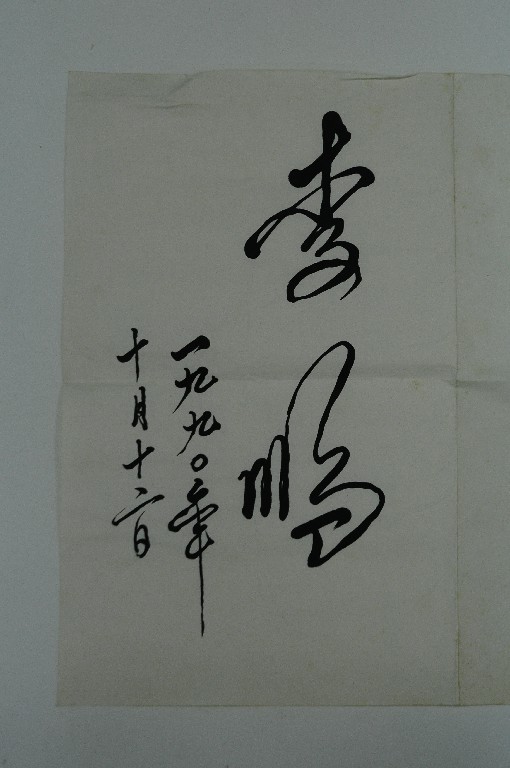 李鹏
一九九〇年
十月十二日